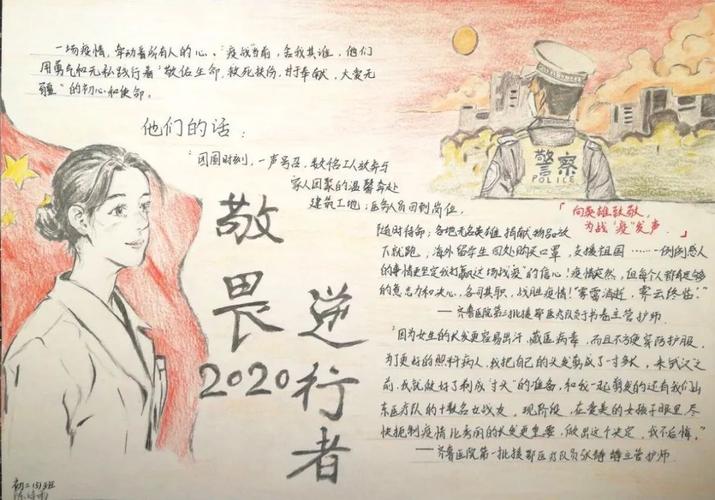 一场疫情，牵动着所有人的心。"疫战"当前，舍我其谁，他们
用勇气和无私践行着"敬佑生命，救死扶伤，甘于奉献，大爱无
疆"的初心和使命。
他们的话：
"团圆时刻，一声号召，数倍工人放弃与
家人团聚的温馨奔赴
建筑工地；医务人员回到岗位，
随时待命；各地无名英雄 捐献物品放
下就跑；海外留学生四处购买口罩，支援祖国……一例例感人
的事情更坚定我打赢这场战疫"的信心！疫情突然，但每个人都有足够
的意志力和决心，各司其职，战胜疫情！"雾霭消逝，霁云终告。"
——齐鲁医院第二批援鄂医疗队行书卷主管护师
"因为女生的长发更容易出汗，藏匿病毒，而且不方便穿防护服，
为了更好的照料病人，我把自己的头发剪成了一寸多长，来武汉之
前，我就做好了剃成"寸头"的准备，和我一起剪发的还有我们山
东医疗队的十数名女战友。现阶段，在爱美的女孩子眼里，尽
快扼制疫情比秀丽的长发更重要，做出这个决定，我不后悔。"
——齐鲁医院第一批援鄂医疗队员张静静主管护师
敬畏
2020
逆行者
警察
POLICE
「向英雄致敬，
为战"疫"发声。」
初二四班